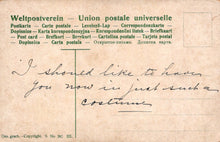 Weltpostverein — Union postale universelle
Postkarte — Carte postale — Levelező-Lap — Correspondenzkarte
Dopisnice — Karta korespondencyjna — Korespondenční lístek — Briefkaart
Post card — Brefkort — Brevkort — Cartolina postale — Tarjeta postal
Dopisnica — Carte postale — Открытое письмо — Дописна карта.
I should like to have
You now in just such a
costume
Ges. gesch.